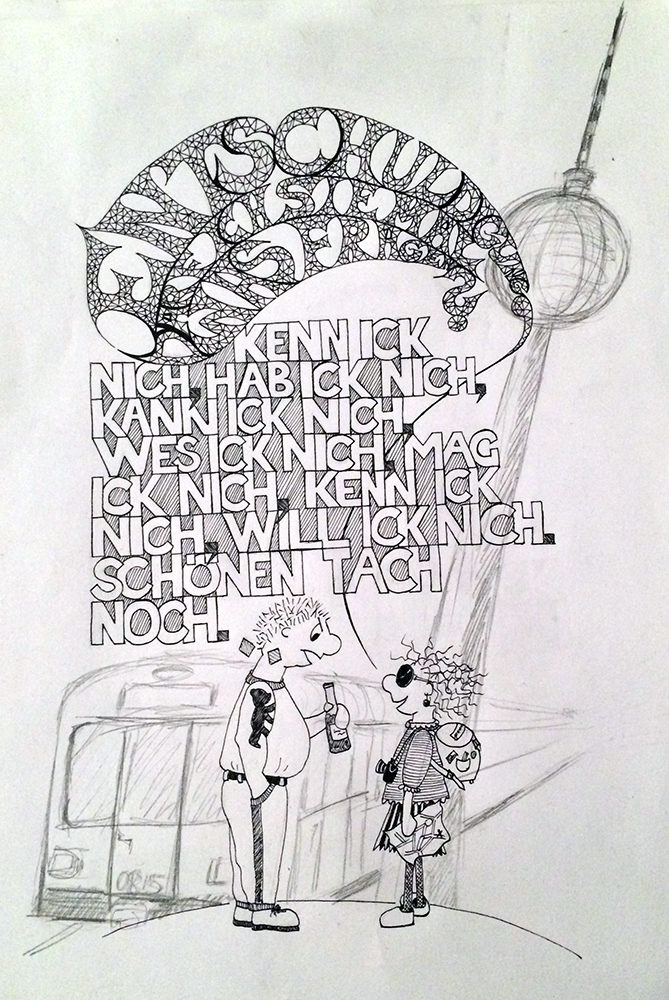 ENTSCHULDIGUNG
KENN ICK
NICH, HAB ICK NICH,
KANN ICK NICH,
WES ICK NICH, MAG
ICK NICH, KENN ICK
NICH, WILL ICK NICH.
SCHÖNEN TACH
NOCH.
0815